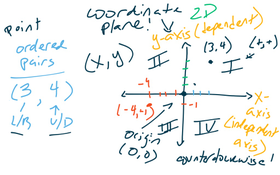 coordinate plane!
2D
point
ordered pairs
(3, 4)
L/R U/D
(x,y)
y-axis (dependent)
(3,4)
(+,+)
II
I
-4
-1
(-4,-1)
III
IV
x-axis
(independent axis)
Origin
(0,0)
counterclockwise!